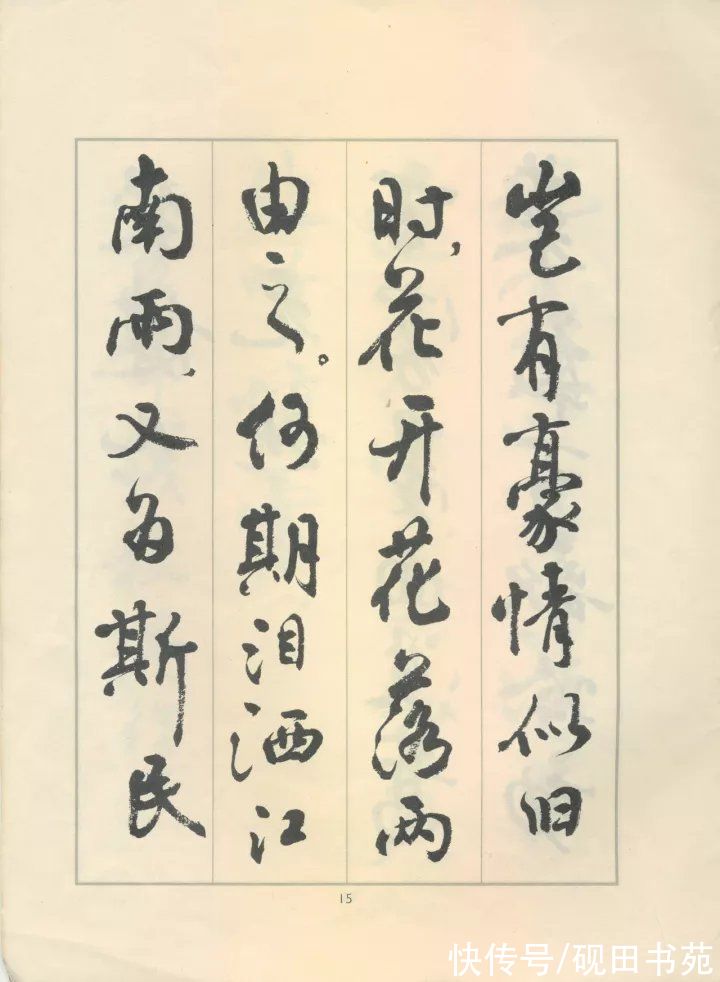 岂有豪情似旧
时，花开花落两
由之。何期泪洒江
南雨，又为斯民
15
快传号/砚田书苑